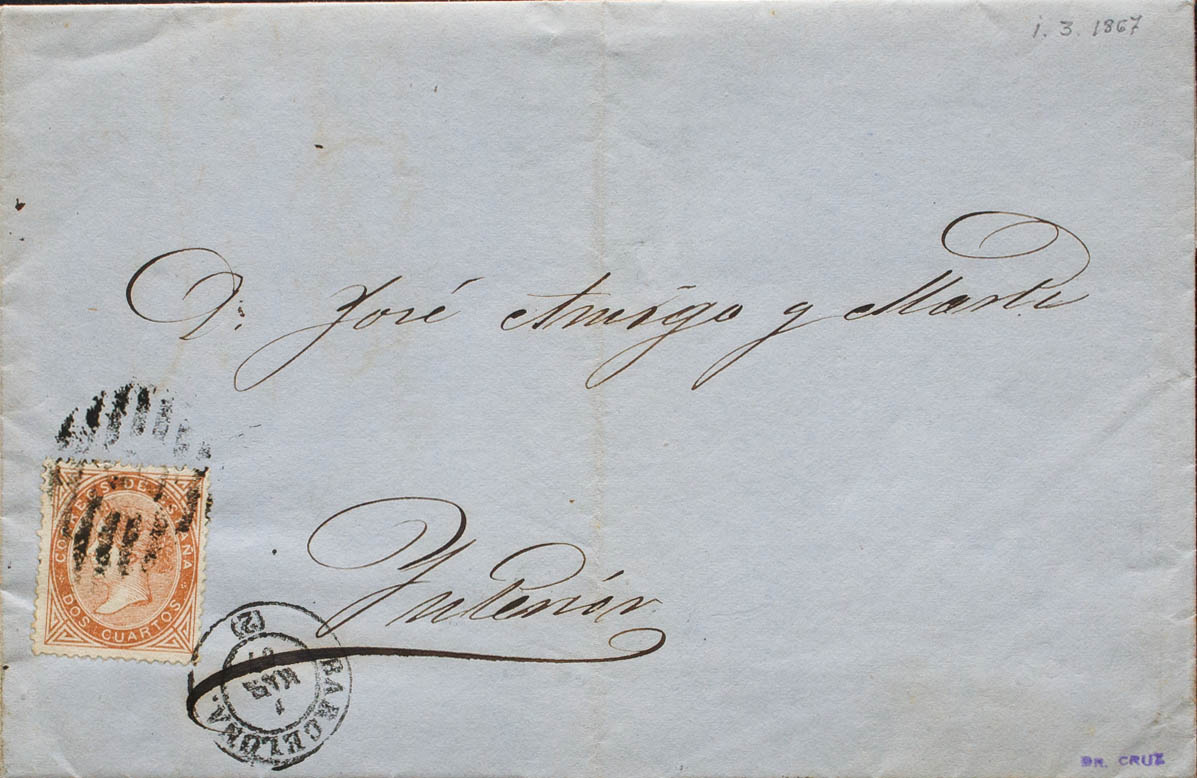 1. 3. 1867
D. José Amigo y Marti
CORREOS DE ESPAÑA
DOS CUARTOS
Interior
BARCELONA.
1
MAR
67
(2)
DR. CRUZ